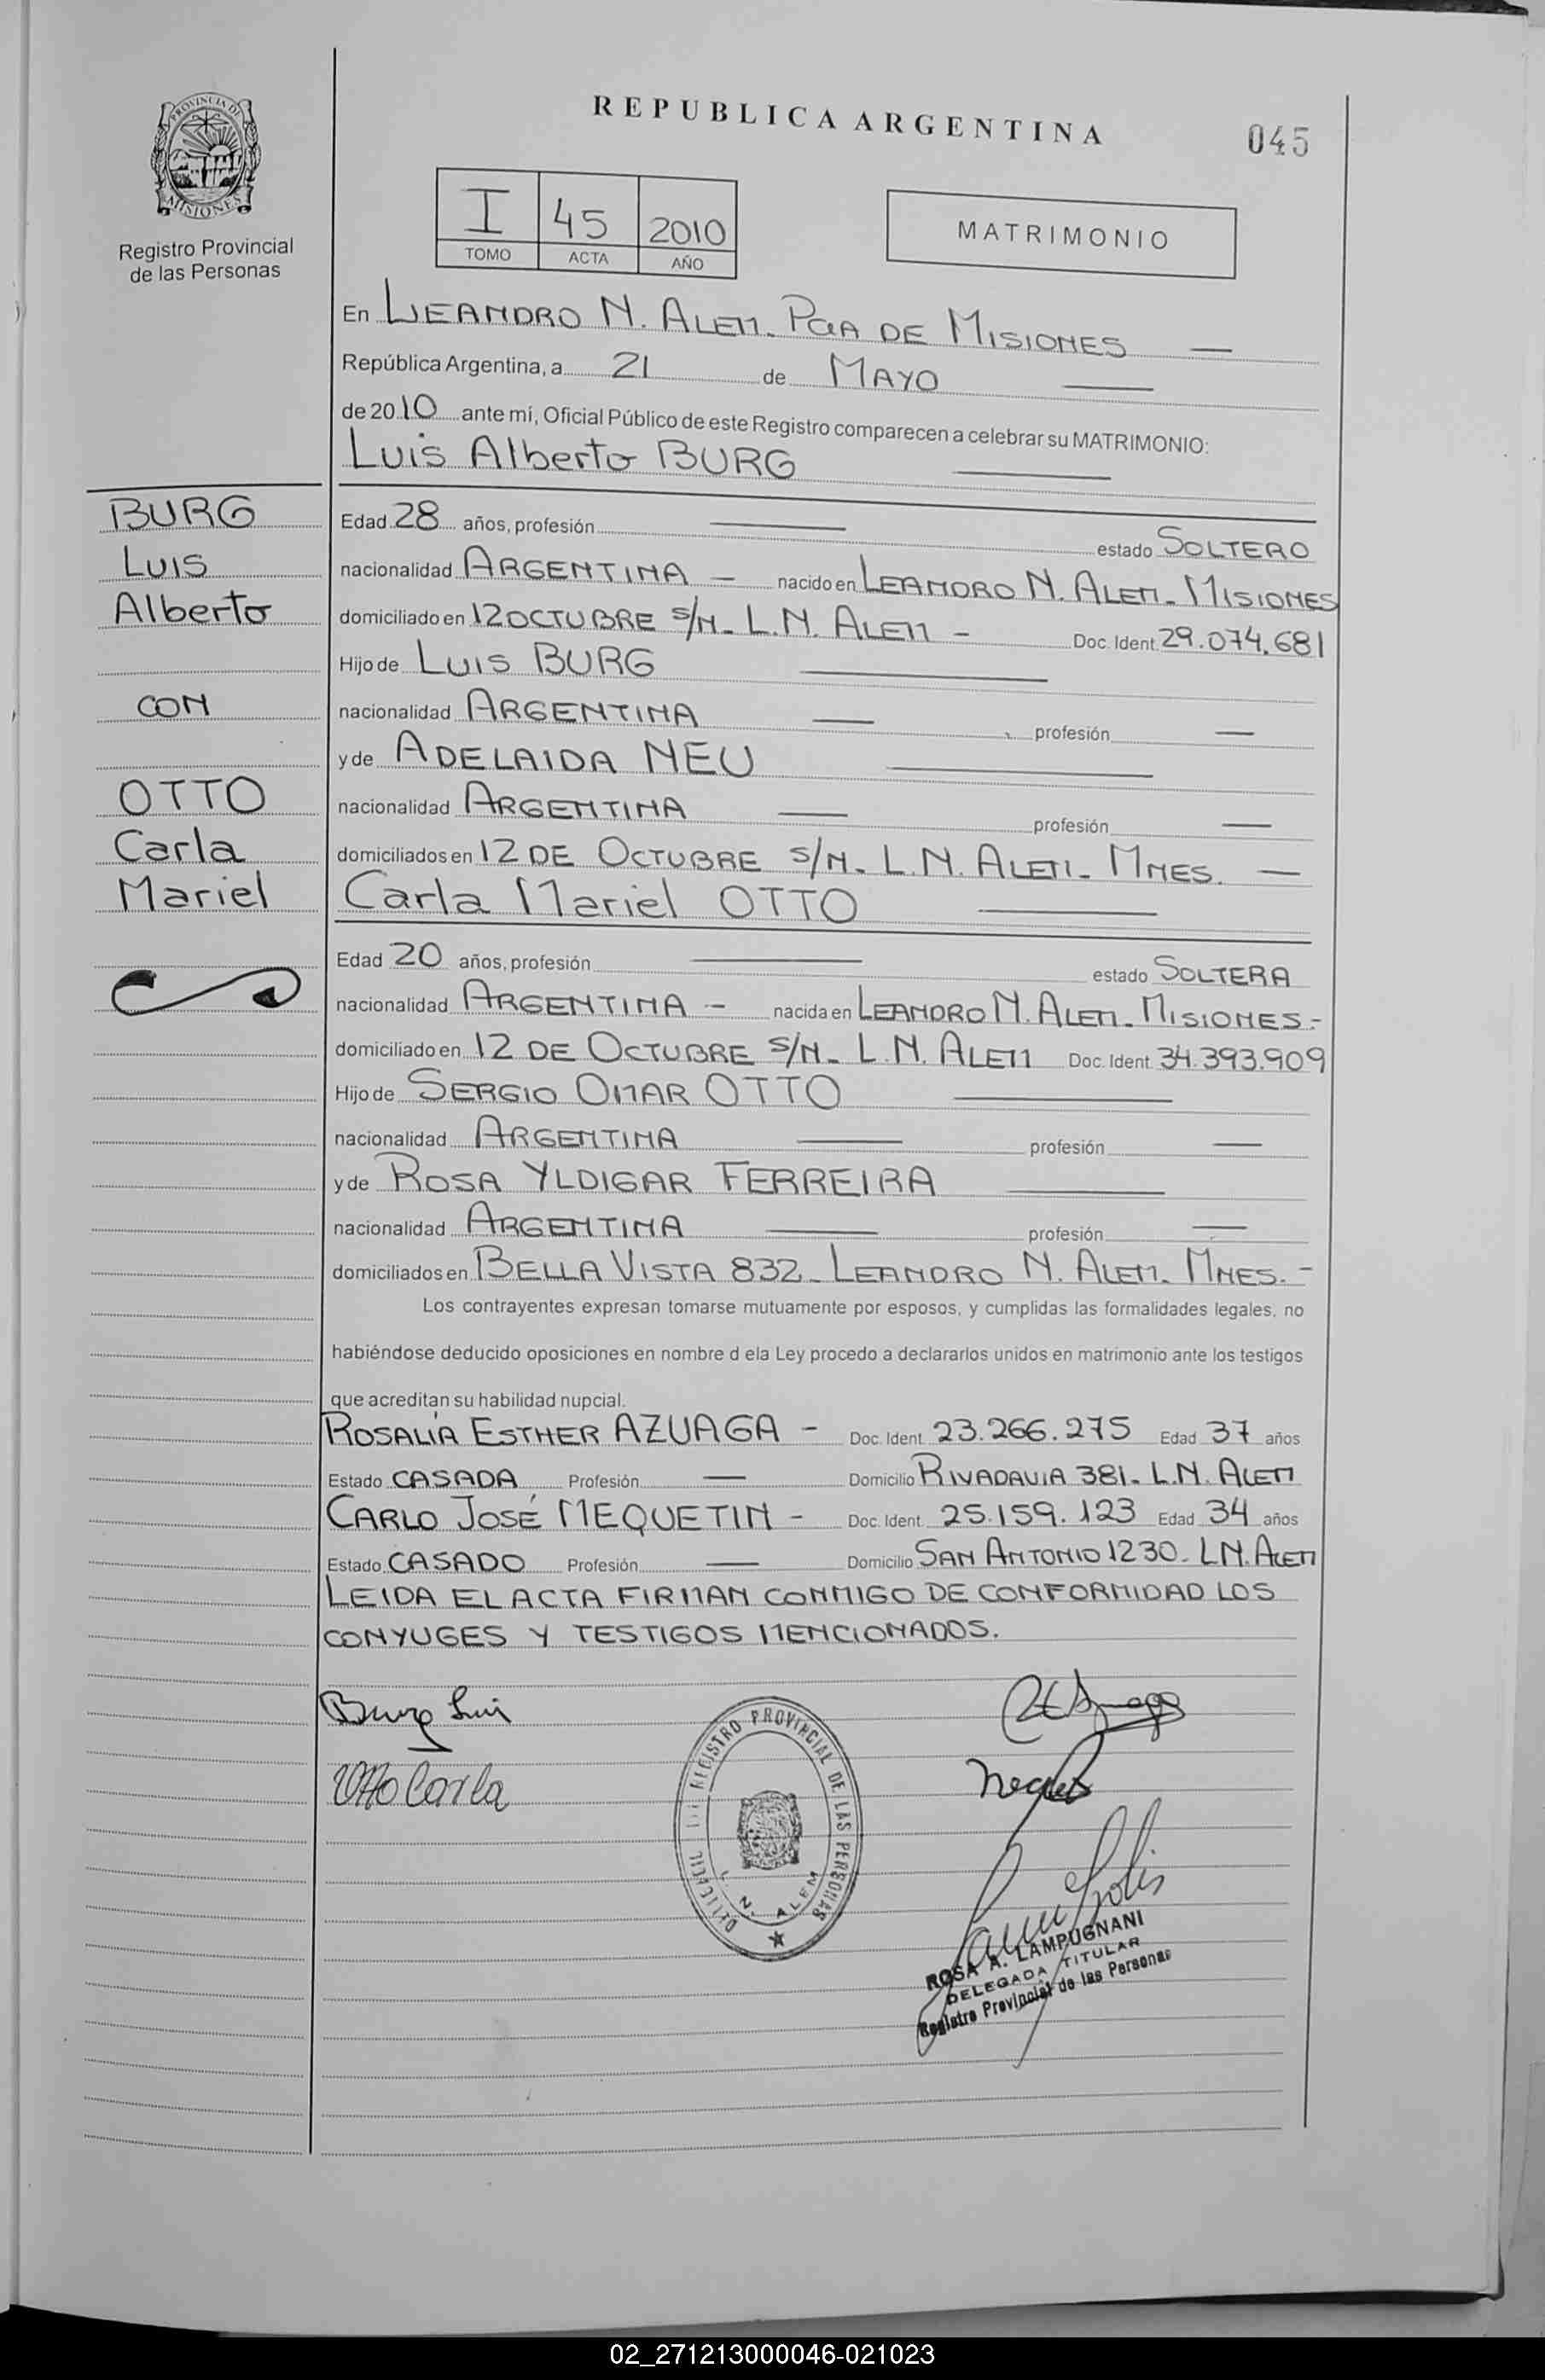 REPUBLICA ARGENTINA
045
PROVINCIA DE MISIONES
Registro Provincial
de las Personas
I 45 2010
TOMO ACTA AÑO
MATRIMONIO
En LEANDRO N. ALEM. PCIA DE MISIONES —
República Argentina, a 21 de MAYO —
de 2010 ante mí, Oficial Público de este Registro comparecen a celebrar su MATRIMONIO:
Luis Alberto BURG —
BURG
Luis
Alberto
CON
OTTO
Carla
Mariel
Edad 28 años, profesión — estado SOLTERO
nacionalidad ARGENTINA — nacido en LEANDRO N. ALEM. MISIONES
domiciliado en 12 OCTUBRE S/N. L.N. ALEM — Doc. Ident. 29.074.681
Hijo de LUIS BURG —
nacionalidad ARGENTINA — profesión —
y de ADELAIDA NEU —
nacionalidad ARGENTINA — profesión —
domiciliados en 12 DE OCTUBRE S/N. L.N. ALEM. MNES. —
Carla Mariel OTTO —
Edad 20 años, profesión — estado SOLTERA
nacionalidad ARGENTINA — nacida en LEANDRO N. ALEM. MISIONES.-
domiciliado en 12 DE OCTUBRE S/N. L.N. ALEM Doc. Ident. 34.393.909
Hijo de SERGIO OMAR OTTO —
nacionalidad ARGENTINA — profesión —
y de ROSA YLDIGAR FERREIRA —
nacionalidad ARGENTINA — profesión —
domiciliados en BELLA VISTA 832. LEANDRO N. ALEM. MNES.-
Los contrayentes expresan tomarse mutuamente por esposos, y cumplidas las formalidades legales, no
habiéndose deducido oposiciones en nombre d ela Ley procedo a declararlos unidos en matrimonio ante los testigos
que acreditan su habilidad nupcial.
ROSALÍA ESTHER AZUAGA - Doc. Ident. 23.266.275 Edad 37 años
Estado CASADA Profesión — Domicilio RIVADAVIA 381. L.N. ALEM
CARLO JOSÉ MEQUETIN - Doc. Ident. 25.159.123 Edad 34 años
Estado CASADO Profesión — Domicilio SAN ANTONIO 1230. L.N. ALEM
LEIDA EL ACTA FIRMAN CONMIGO DE CONFORMIDAD LOS
CONYUGES Y TESTIGOS MENCIONADOS.
Burg Luis
Otto Carla
REGISTRO PROVINCIAL DE LAS PERSONAS
L. N. ALEM
ROSA A. LAMPUGNANI
DELEGADA TITULAR
Registro Provincial de las Personas
02_271213000046-021023